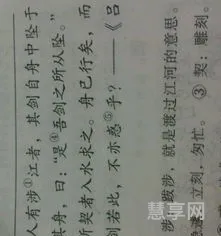 人有涉①江者，其剑自舟中坠于
其舟，曰：“是④吾剑之所从坠。”
契者入水求之。舟已行矣，而
若此，不亦惑⑤乎？——《吕
涉，跋涉，就是渡过江河的意思。
立刻，匆忙。 ③ 契：雕刻。
慧享网